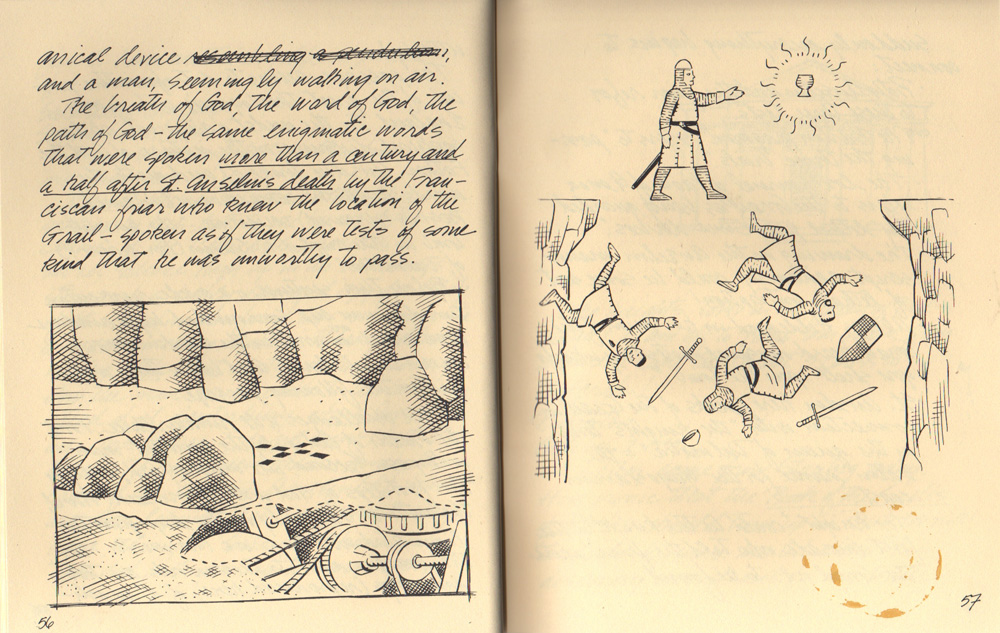 anical device resembling a pendulum,
and a man, seemingly walking on air.
The breath of God, the word of God, the
path of God - the same enigmatic words
that were spoken more than a century and
a half after St. Anselm's death by the Fran-
ciscan friar who knew the location of the
Grail - spoken as if they were tests of some
kind that he was unworthy to pass.
56
57